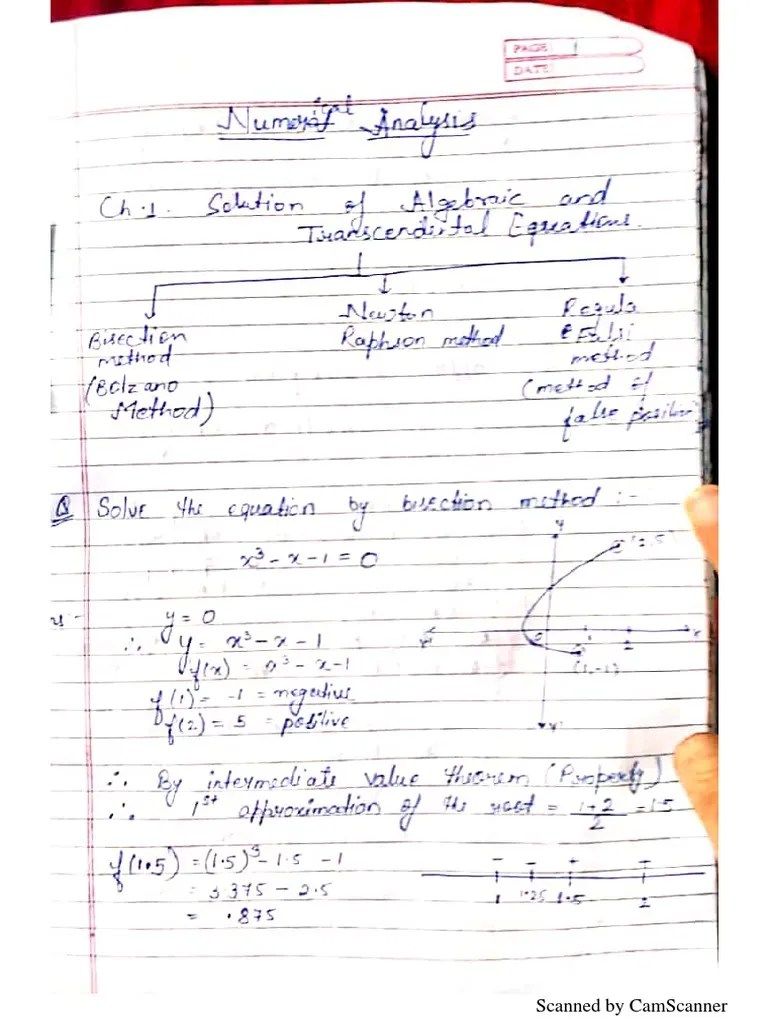 PAGE 1
DATE
Numerical Analysis
Ch.1. Solution of Algebraic and
Transcendental Equations.
Bisection
method
(Bolzano
Method)
Newton
Raphson method
Regula
Falsi
method
(method of
false position
Q Solve the equation by bisection method :-
x³ - x - 1 = 0
y = 0
∴ y = x³ - x - 1
f(x) = x³ - x - 1
f(1) = -1 = negative
f(2) = 5 = positive
y
(2,5)
x
(1,-1)
y'
∴ By intermediate value theorem (Property)
∴ 1st approximation of the root = 1+2/2 = 1.5
f(1.5) = (1.5)³ - 1.5 - 1
= 3.375 - 2.5
= .875
- - + +
1 1.25 1.5 2
Scanned by CamScanner